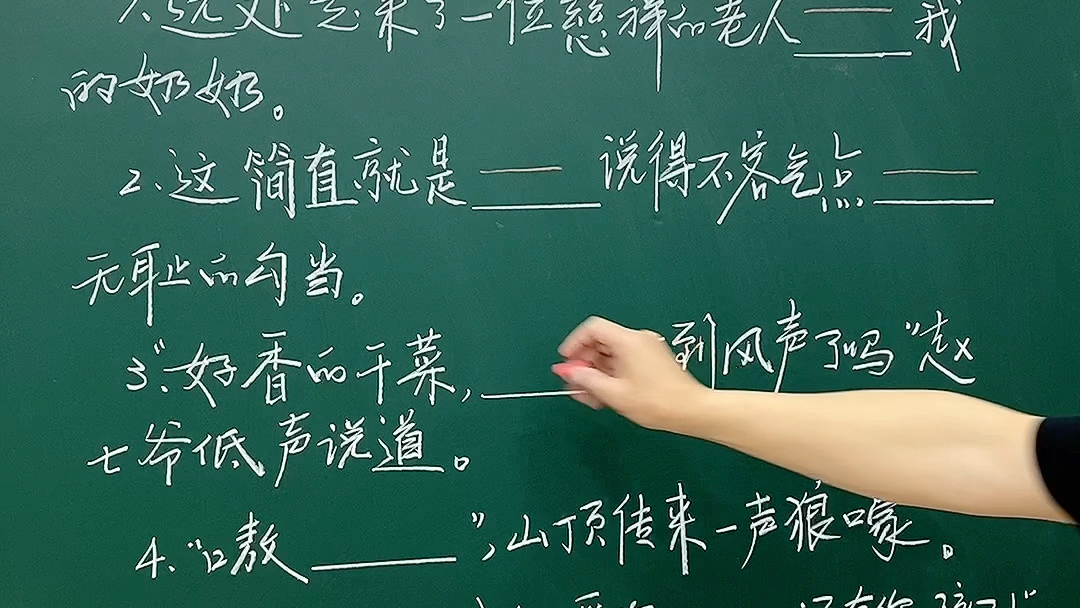 1.远处走来了一位慈祥的老人——我
的奶奶。
2.这简直就是——说得不客气点——
无耻的勾当。
3."好香的干菜,____到风声了吗"赵
七爷低声说道。
4."嗷____",山顶传来一声狼嚎。